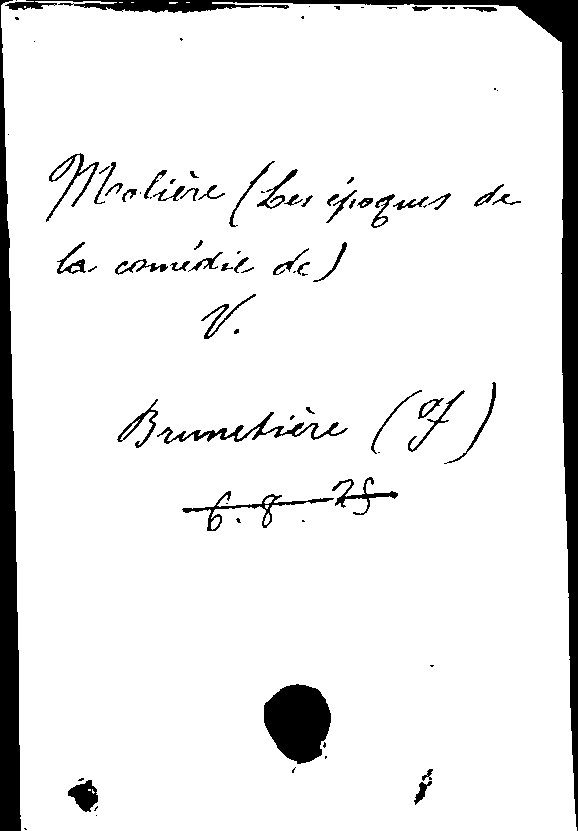 Molière (Les époques de
la comédie de)
V.
Brunetière (F)
6.8.25